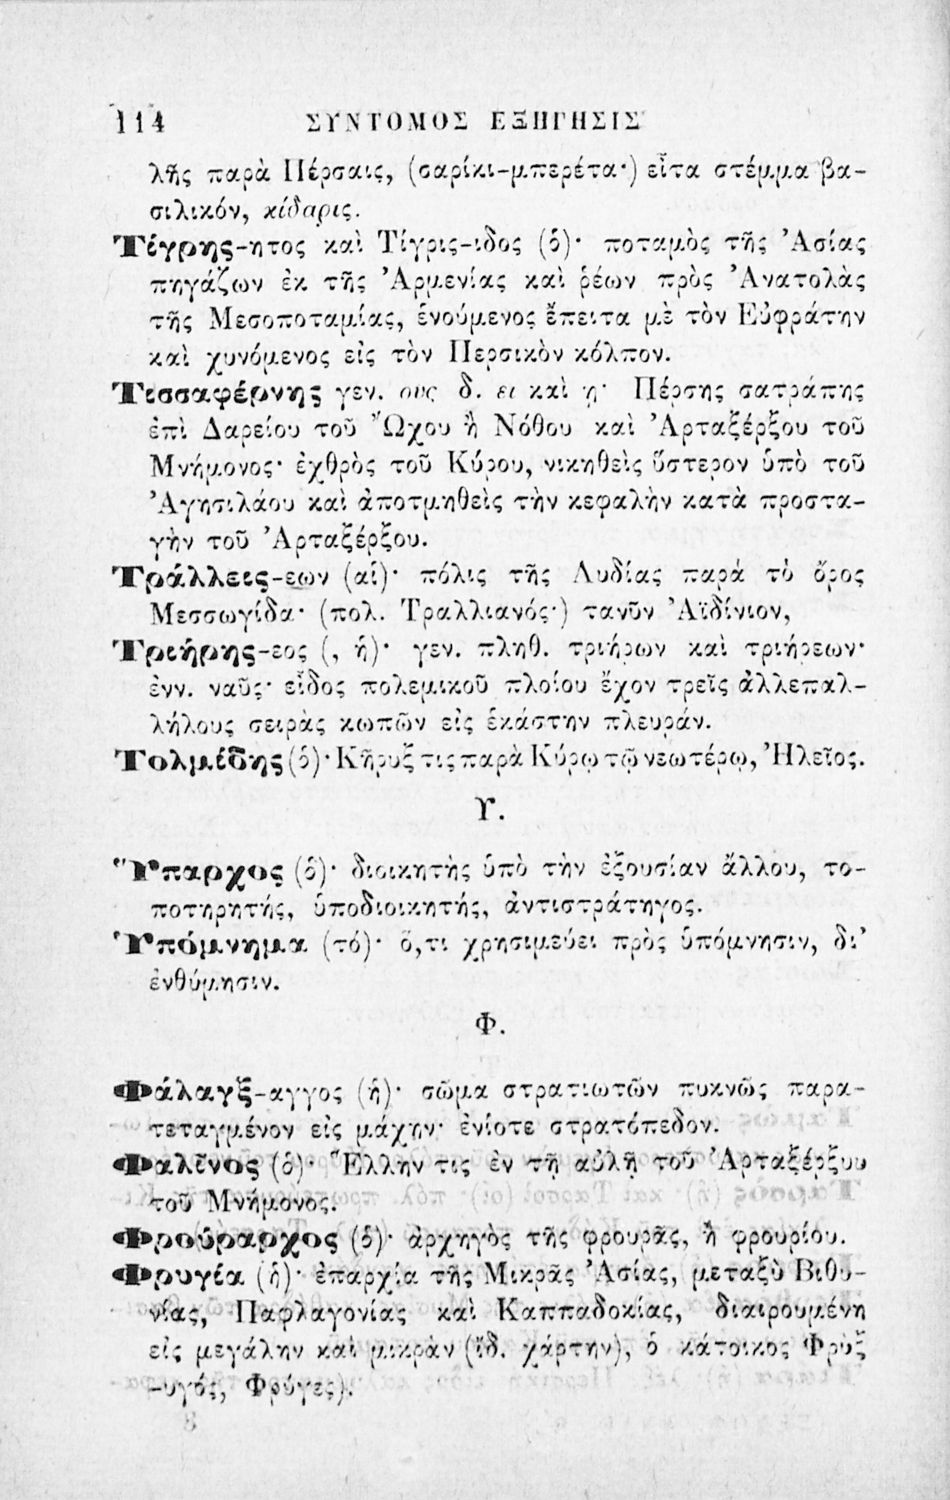 114 ΣΥΝΤΟΜΟΣ ΕΞΗΓΗΣΙΣ
λῆς παρὰ Πέρσαις, (σαρίκι-μπερέτα·) εἶτα στέμμα βα-
σιλικόν, κίδαρις.
Τίγρης-ητος καὶ Τίγρις-ιδος (ὁ)· ποταμὸς τῆς Ἀσίας
πηγάζων ἐκ τῆς Ἀρμενίας καὶ ῥέων πρὸς Ἀνατολὰς
τῆς Μεσοποταμίας, ἑνούμενος ἔπειτα μὲ τὸν Εὐφράτην
καὶ χυνόμενος εἰς τὸν Περσικὸν κόλπον.
Τισσαφέρνης γεν. ους δ. ει καὶ η· Πέρσης σατράπης
ἐπὶ Δαρείου τοῦ Ὤχου ἢ Νόθου καὶ Ἀρταξέρξου τοῦ
Μνήμονος· ἐχθρὸς τοῦ Κύρου, νικηθεὶς ὕστερον ὑπὸ τοῦ
Ἀγησιλάου καὶ ἀποτμηθεὶς τὴν κεφαλὴν κατὰ προστα-
γὴν τοῦ Ἀρταξέρξου.
Τράλλεις-εων (αἱ)· πόλις τῆς Λυδίας παρὰ τὸ ὄρος
Μεσσωγίδα· (πολ. Τραλλιανός·) τανῦν Ἀϊδίνιον,
Τριήρης-εος (, ἡ)· γεν. πληθ. τριήρων καὶ τριήρεων·
ἐνν. ναῦς· εἶδος πολεμικοῦ πλοίου ἔχον τρεῖς ἀλλεπαλ-
λήλους σειρὰς κωπῶν εἰς ἑκάστην πλευράν.
Τολμίδης (ὁ)· Κῆρυξ τις παρὰ Κύρῳ τῷ νεωτέρῳ, Ἠλεῖος.
Υ.
Ὕπαρχος (ὁ)· διοικητὴς ὑπὸ τὴν ἐξουσίαν ἄλλου, το-
ποτηρητής, ὑποδιοικητής, ἀντιστράτηγος.
Ὑπόμνημα (τό)· ὅ,τι χρησιμεύει πρὸς ὑπόμνησιν, δι’
ἐνθύμησιν.
Φ.
Φάλαγξ-αγγος (ἡ)· σῶμα στρατιωτῶν πυκνῶς παρα-
τεταγμένον εἰς μάχην· ἐνίοτε στρατόπεδον.
Φαλῖνος (ὁ)· Ἕλλην τις ἐν τῇ αὐλῇ τοῦ Ἀρταξέρξου
τοῦ Μνήμονος.
Φρούραρχος (ὁ)· ἀρχηγὸς τῆς φρουρᾶς, ἢ φρουρίου.
Φρυγία (ἡ)· ἐπαρχία τῆς Μικρᾶς Ἀσίας, μεταξὺ Βιθυ-
νίας, Παφλαγονίας καὶ Καππαδοκίας, διαιρουμένη
εἰς μεγάλην καὶ μικρὰν (ἴδ. χάρτην), ὁ κάτοικος Φρὺξ
-υγός, Φρύγες).
8